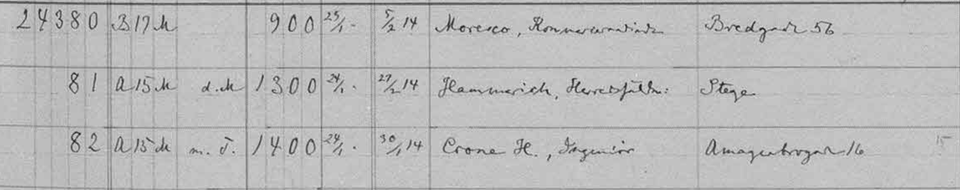 24380 B 17 M 900 25/1 - 5/2 14 Moresco, Bredgade 56
81 A 15 M d. M 1300 24/1 - 27/2 14 Hammerich, Herredsfuldm: Stege
82 A 15 M m. T. 1400 29/1 - 30/1 14 Crone H., Ingeniør Amagerbrogade 16 15